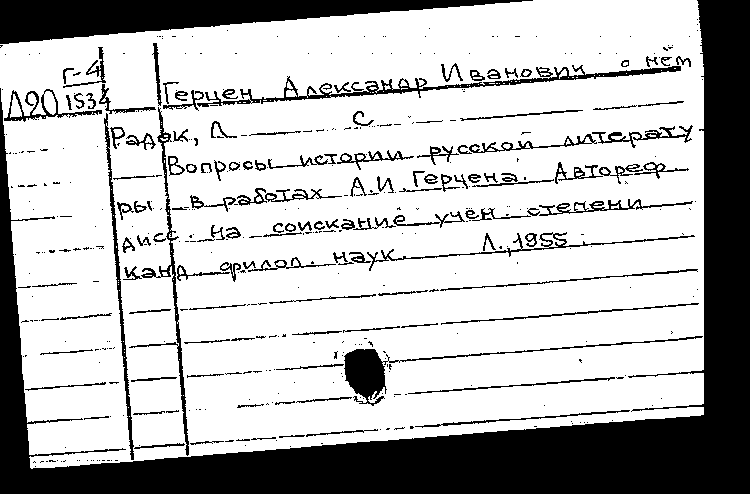 Г-4
Л90 1534
Герцен, Александр Иванович о нём
Радек, Л С
Вопросы истории русской литерату-
ры в работах А.И. Герцена. Автореф
дисс. на соискание учен. степени
канд. филол. наук. Л., 1955.